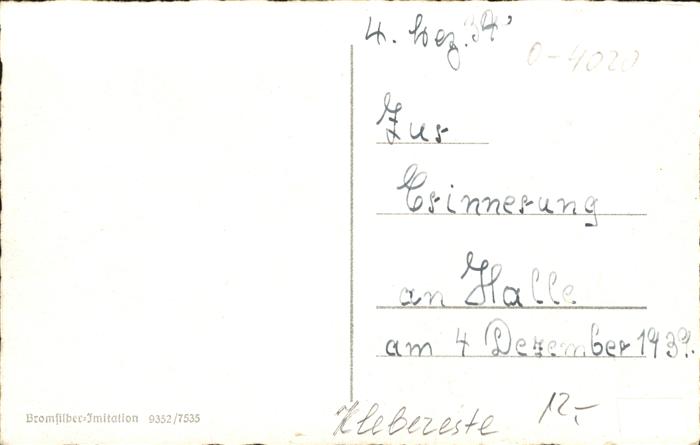 4. Dez. 37'
0-4020
Zur
Erinnerung
an Halle
am 4 Dezember 1937.
Bromsilber-Imitation 9352/7535
Klebereste 12,-